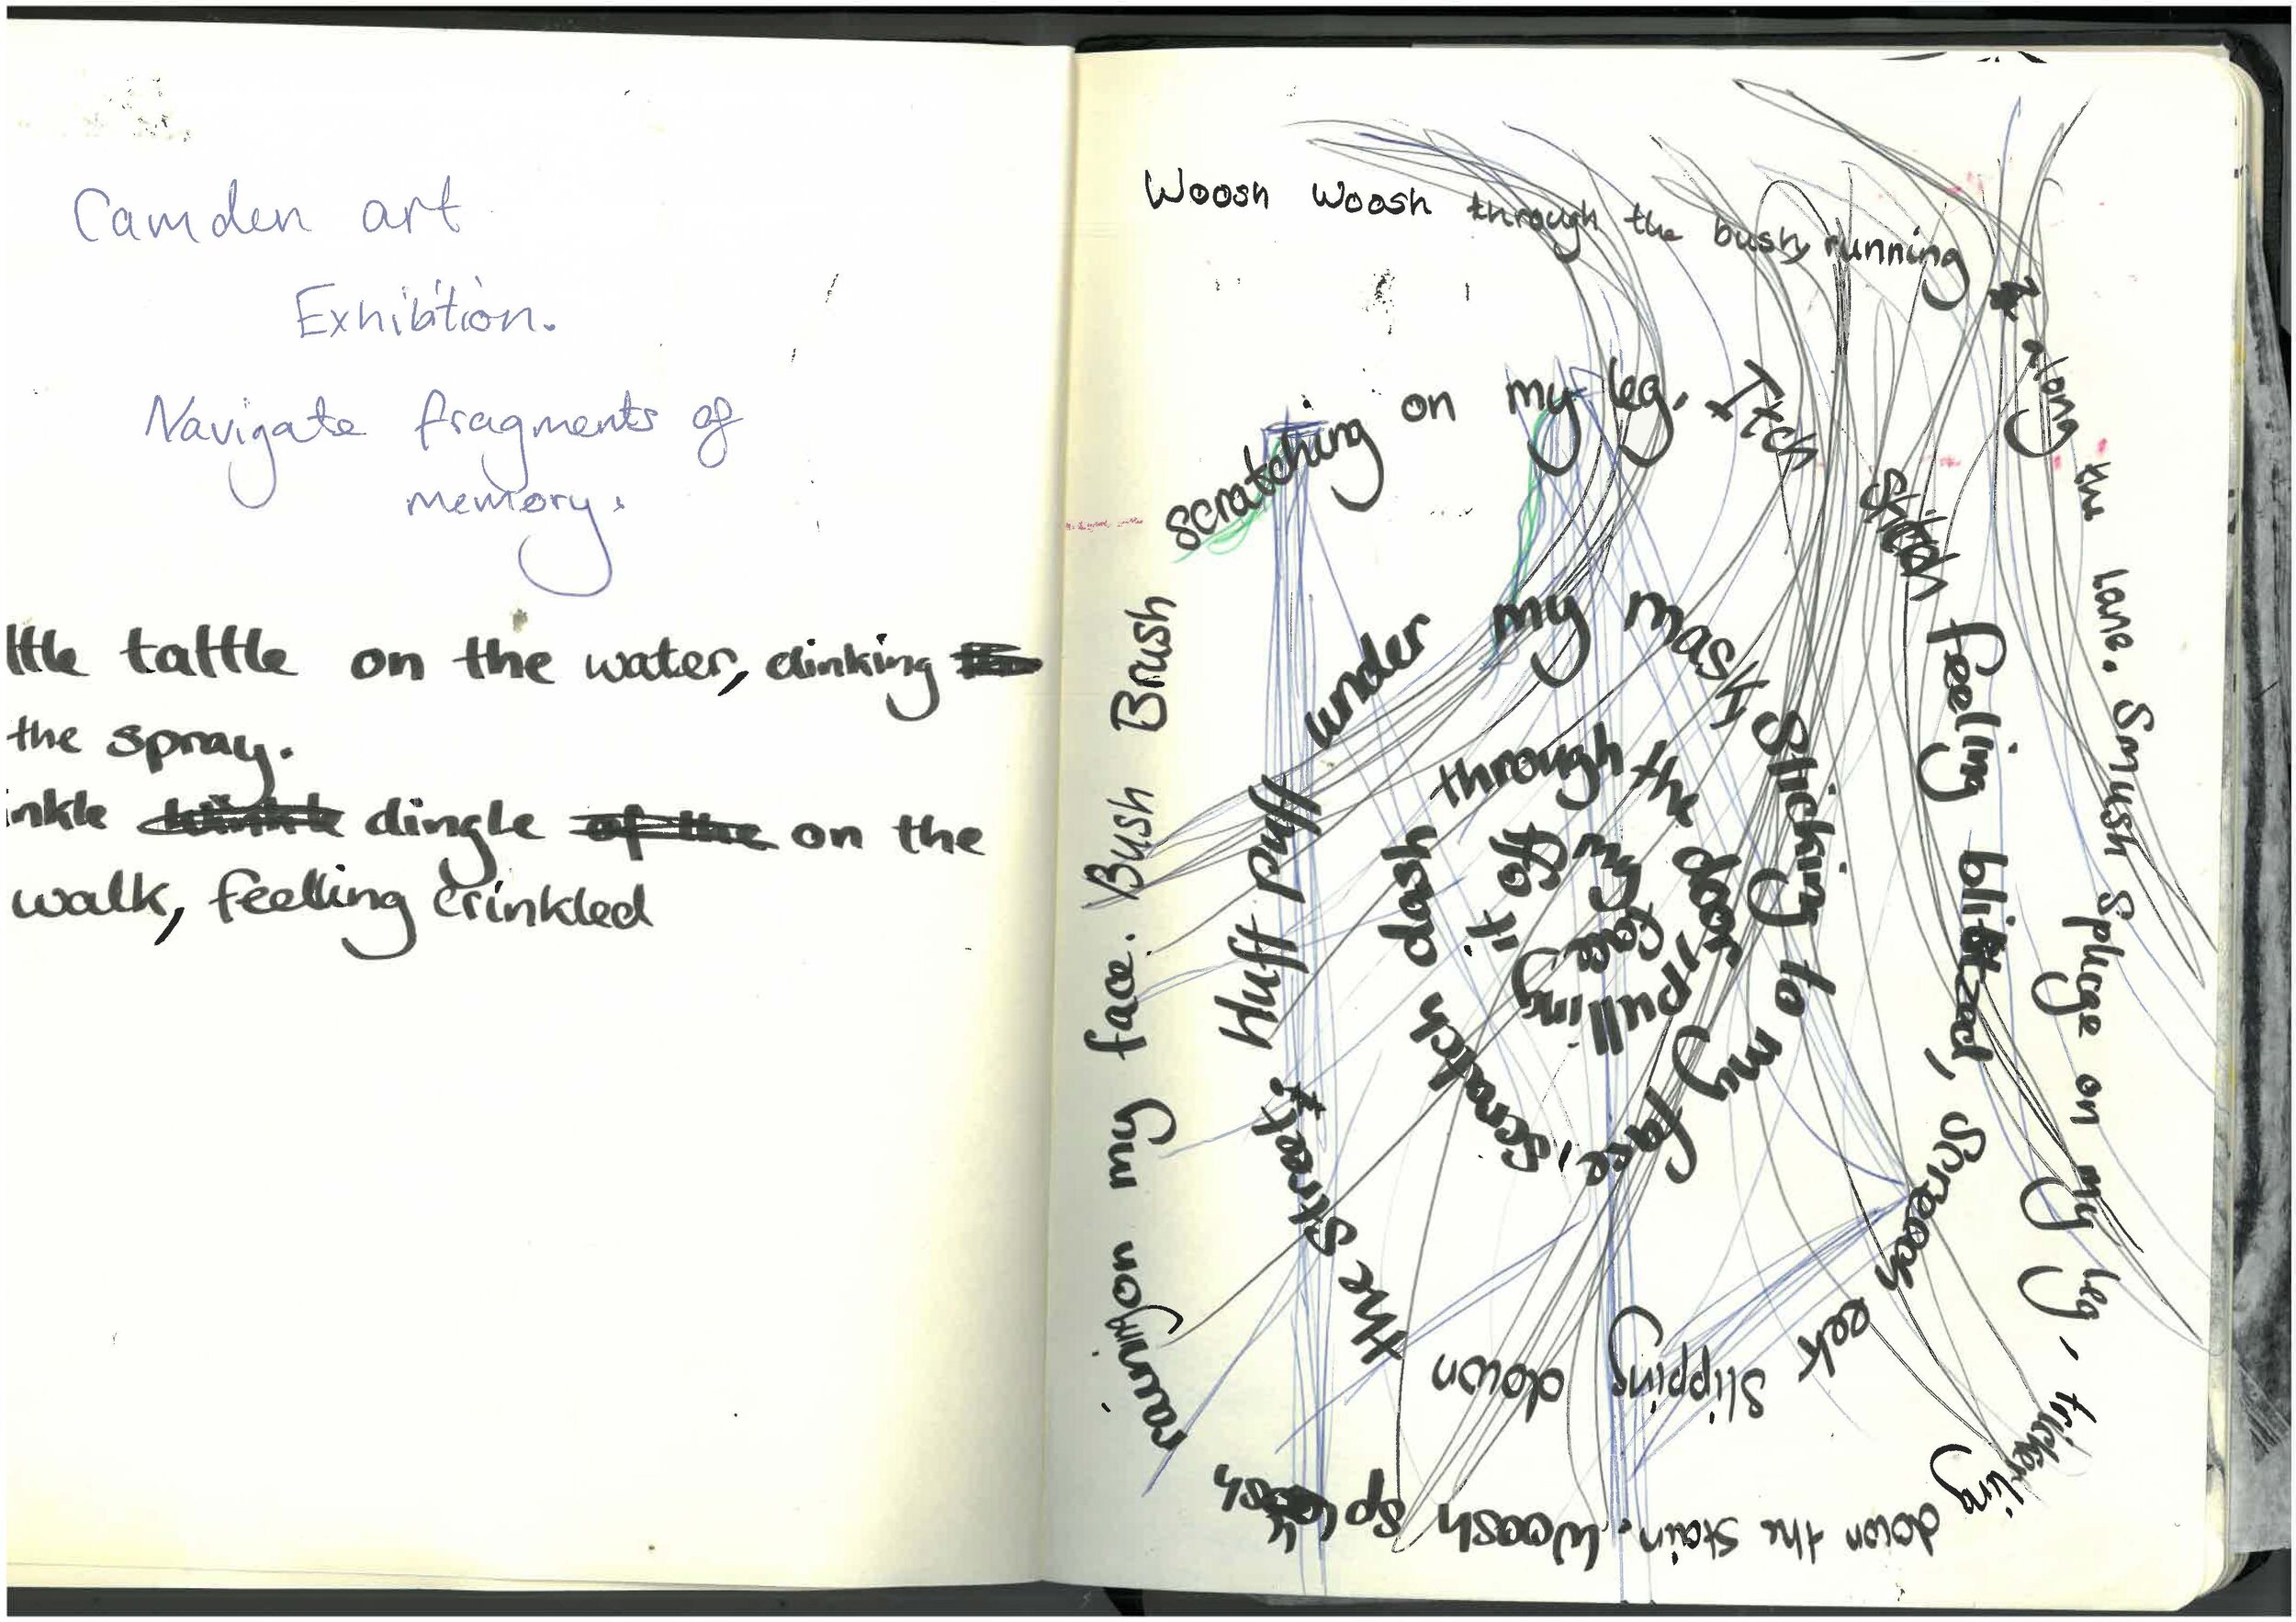 Camden art
Exhibition.
Navigate fragments of
memory.
ltte tattle on the water, dinking
the spray.
inkle dingle on the
walk, feelling crinkled
Woosh woosh through the bushy running along the lane. Smush Spluge on my leg, trickerling down the stain. Woosh splash raining on my face. Bush Brush scratching on my leg. Itch stitch feeling blitzed, Screach eek slipping down the street. Huff puff under my mask sticking to my face, scratch dash through the door, pulling it off my face